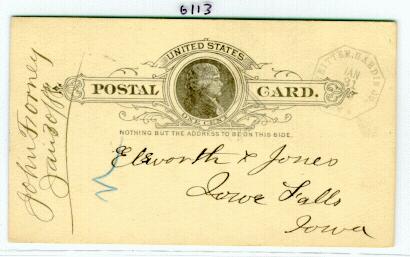 6113
UNITED STATES
POSTAL CARD.
ONE CENT
NOTHING BUT THE ADDRESS TO BE ON THIS SIDE.
RITTER, HARDIN CO.
JAN
Elsworth & Jones
Iowa Falls
Iowa
John Forney